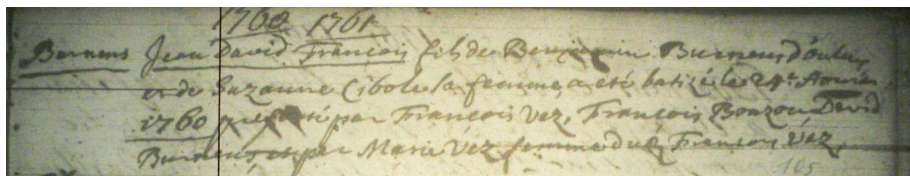 1760 1761
Burnens Jean David François fils de Benjamin Burnens d'Oulens
et de Suzanne Cibole sa femme, a été batizé le 24e
1760 présenté par François Vez, François Bonzon David
Burnens, et par Marie Vez femme dud. François Vez
105